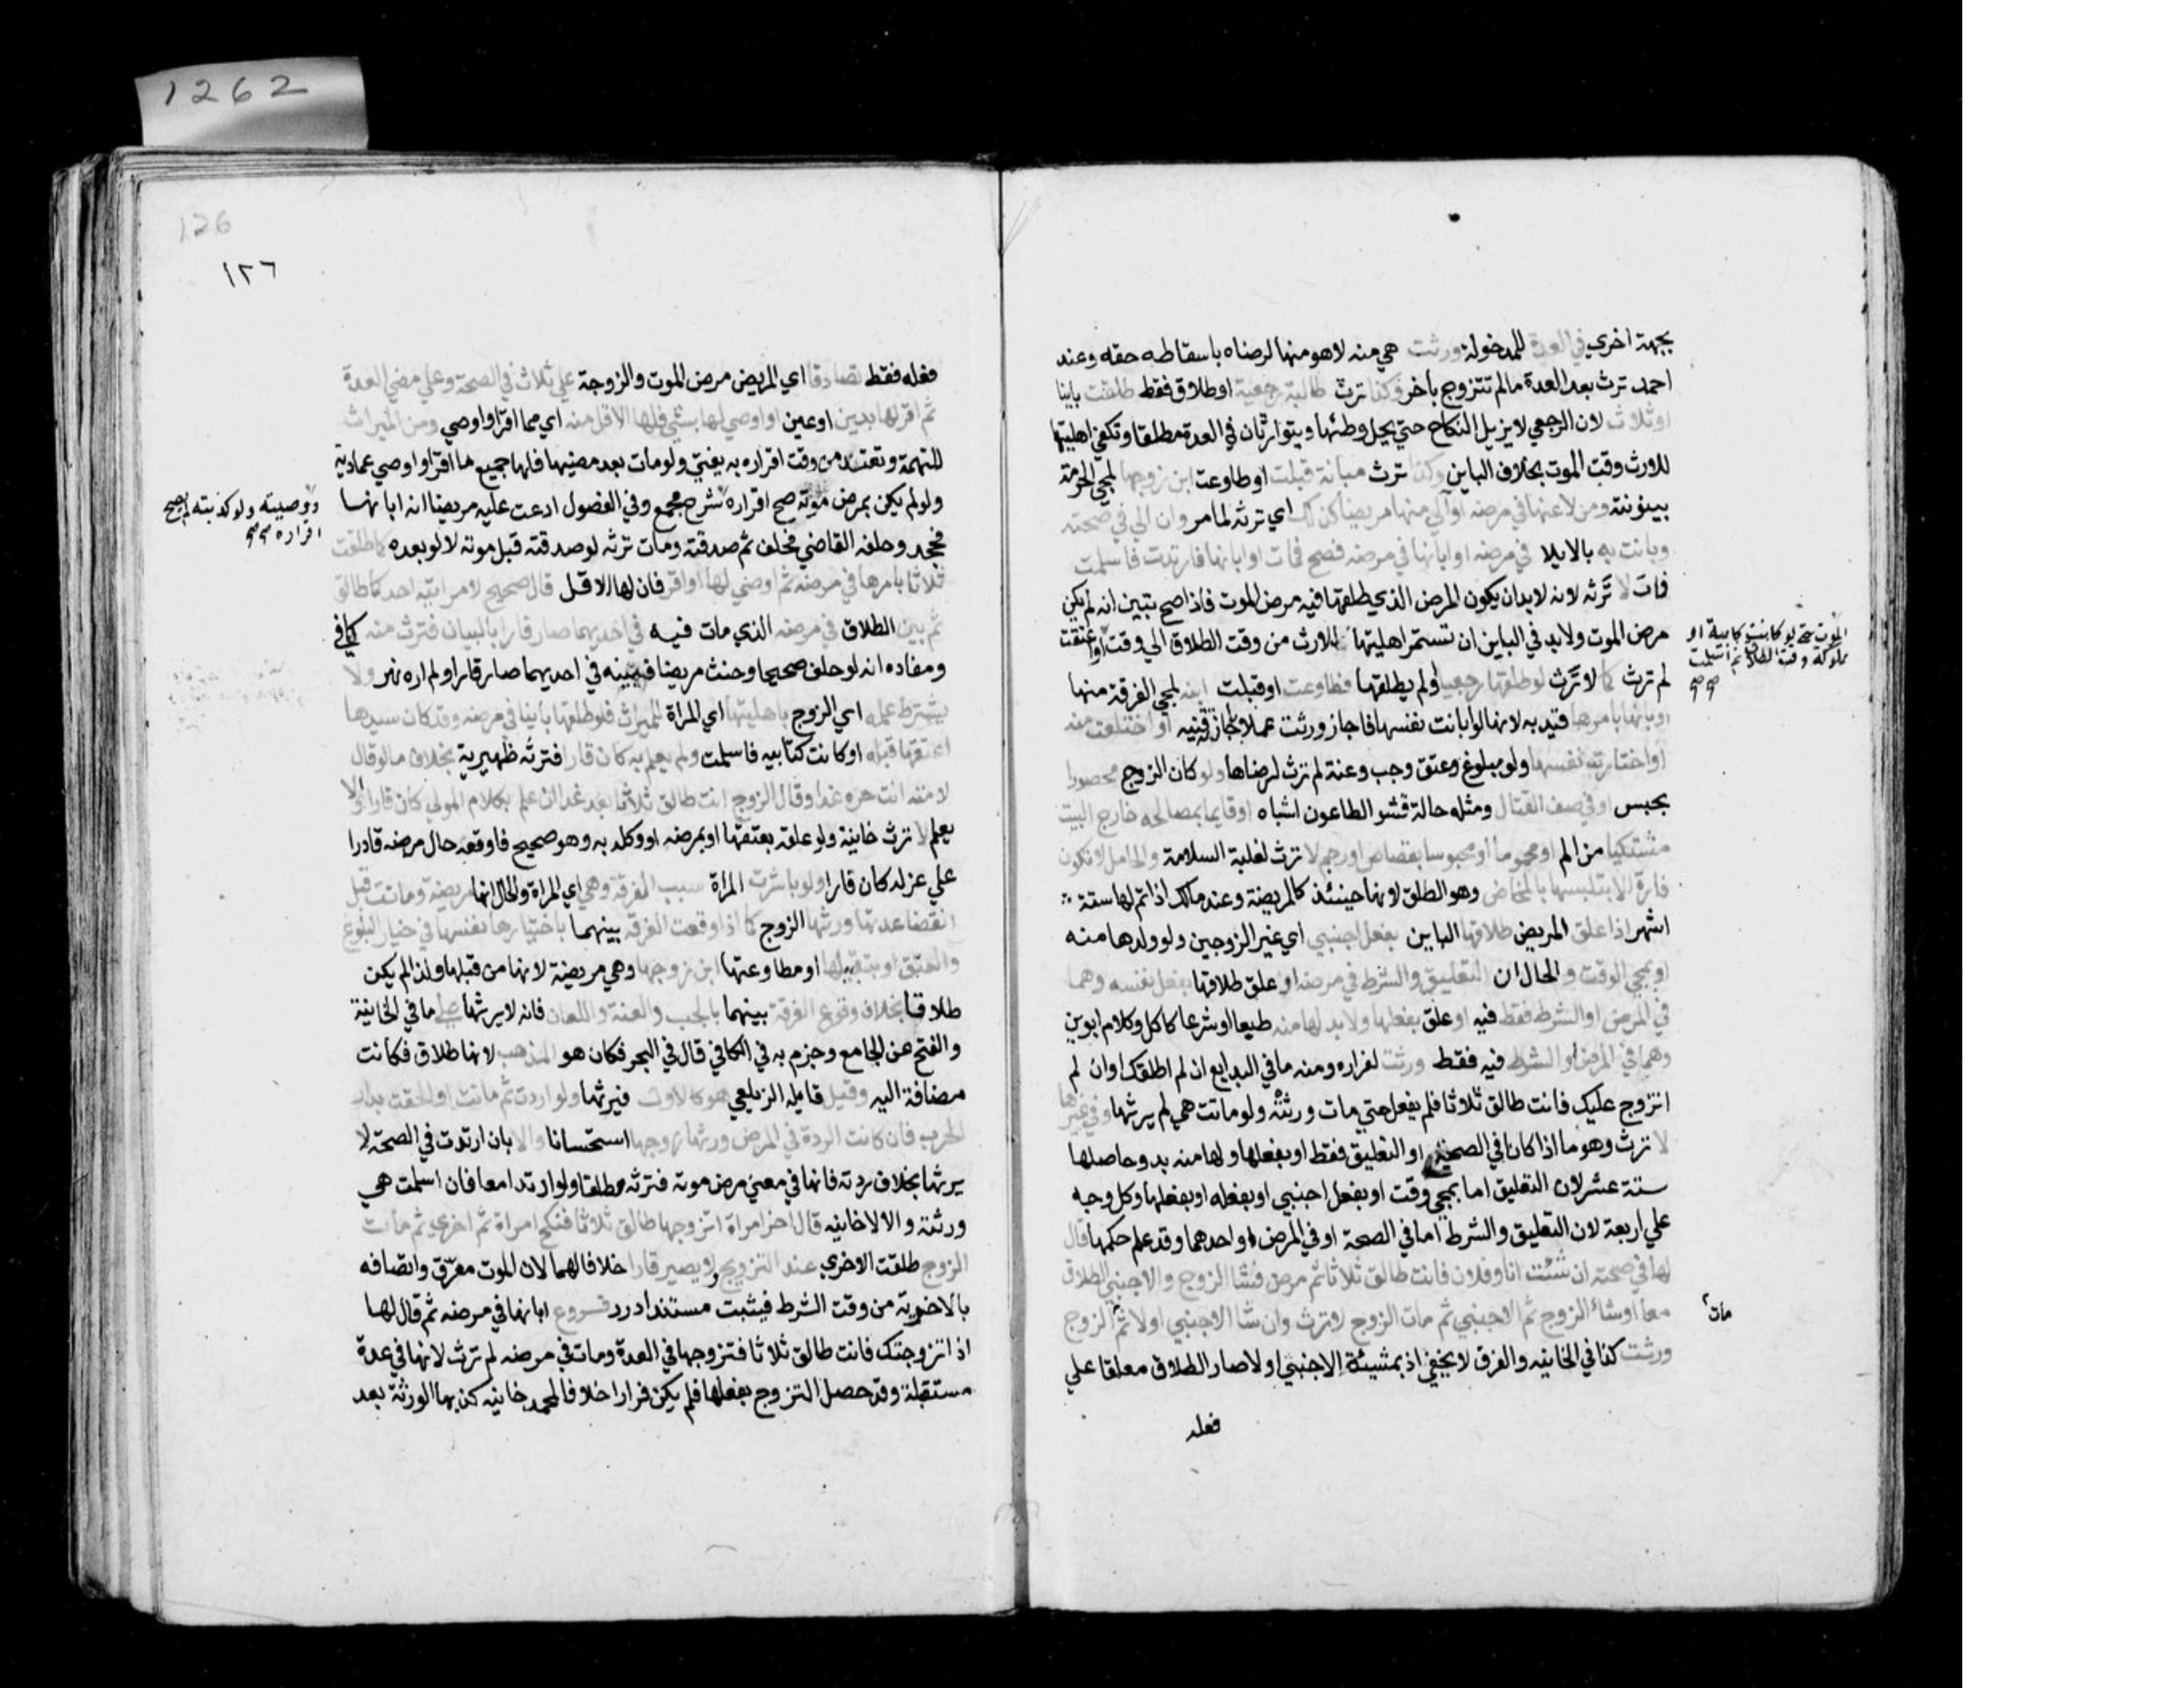 بجهة اخري في العدة للمدخولة ورثت هي منه لاهو منها لرضاه باسقاطه حقه وعند
احمد ترث بعد العدة مالم تتزوج باخر وكذا ترث طالبة رجعية او طلاق فقط طلقت باينا
او ثلاث لان الرجعي لا يزيل النكاح حتي يحل وطئها ويتوارثان في العدة مطلقا وتكفي اهليتها
للورث وقت الموت بخلاف الباين وكذا ترث مبانة قبلت او طاوعت ابن زوجها لمجي الحرمة
بينونته ومن لاعنها في مرضه او آلي منها مريضا كذلك اي ترثه لما مر وان الي في صحته
وبانت به بالايلا في مرضه او ابانها في مرضه فصح فمات او ابانها فارتدت فاسلمت
فمات لا ترثه لانه لابد ان يكون المرض الذي طلقها فيه مرض الموت فاذا صح تبين انه لم يكن
مرض الموت ولابد في الباين ان تستمر اهليتها للارث من وقت الطلاق الي وقت او اعتقت
الموت حتي لو كانت كتابية او
مملوكة وقت الطلاق ثم اسلمت
صح صح
لم ترث كما لا ترث لو طلقها رجعيا او لم يطلقها فطاوعت او قبلت ابنه لمجي الفرقة منها
او ابانها بامرها قيد به لانها لو ابانت نفسها فاجاز ورثت عملا باجازته قنيه او اختلعت منه
او اختارت نفسها ولو ببلوغ وعتق وجب وعنة لم ترث لرضاها ولو كان الزوج محصورا
بحبس او في صف القتال ومثله حالة فشو الطاعون اشباه او قايما بمصالحه خارج البيت
مشتكيا من الم او محموما او محبوسا بقصاص او رجم لا ترث لغلبة السلامة والحامل لا تكون
فارة الا بتلبسها بالمخاض وهو الطلق لانها حينئذ كالمريضة وعند مالك اذا تم لها ستة
اشهر اذا علق المريض طلاقها الباين بفعل اجنبي اي غير الزوجين ولو ولدها منه
او بمجي الوقت والحال ان التعليق والشرط في مرضه او علق طلاقها بفعل نفسه وهما
في المرض او الشرط فقط فيه او علق بفعلها ولابد لها منه طبعا او شرعا كاكل وكلام ابوين
وهما في المرض او الشرط فيه فقط ورثت لفراره ومنه ما في البدايع ان لم اطلقك او ان لم
اتزوج عليك فانت طالق ثلاثا فلم يفعل حتي مات ورثته ولو ماتت هي لم يرثها وفي غيرها
لا ترث وهو ما اذا كان في الصحة او التعليق فقط او بفعلها ولها منه بد وحاصلها
ستة عشر لان التعليق اما بمجي وقت او بفعل اجنبي او بفعله او بفعلها وكل وجه
علي اربعة لان التعليق والشرط اما في الصحة او في المرض او احدهما وقد علم حكمها قال
لها في صحته ان شئت انا وفلان فانت طالق ثلاثا ثم مرض فشا الزوج والاجنبي الطلاق
معا او شاء الزوج ثم الاجنبي ثم مات الزوج لا ترث وان شا الاجنبي اولا ثم الزوج
مات
ورثت كذا في الخانيه والفرق لا يخفي اذ بمشيئة الاجنبي اولا صار الطلاق معلقا علي
فعله
1262
126
١٢٦
فعله فقط تصادقا اي المريض مرض الموت والزوجة علي ثلاث في الصحة وعلي مضي العدة
ثم اقر لها بدين او عين او اوصي لها بشئ فلها الاقل منه اي مما اقر او اوصي ومن الميراث
للتهمة وتعتد من وقت اقراره به يفتي ولو مات بعد مضيها فلها جميع ما اقر او اوصي عمادية
ولو لم يكن بمرض موته صح اقراره شرح مجمع وفي الفصول ادعت عليه مريضا انه ابانها
ووصيته ولو كذبته لم يصح
اقراره صح صح
فجحد وحلفه القاضي فحلف ثم صدقته ومات ترثه لو صدقته قبل موته لا لو بعده كما طلقت
ثلاثا بامرها في مرضه ثم اوصي لها او اقر فان لها الاقل قال صحيح لامراتيه احدكما طالق
ثم بين الطلاق في مرضه الذي مات فيه في احديهما صار قارا بالبيان فترث منه كافي
ومفاده انه لو حلف صحيحا وحنث مريضا فبينه في احديهما صار قارا ولم اره نهر ولا
يشترط علمه اي الزوج باهليتها اي المراة للميراث فلو طلقها باينا في مرضه وقد كان سيدها
اعتقها قبله او كانت كتابيه فاسلمت ولم يعلم به كان قارا فترثه ظهيرية بخلاف ما لو قال
لامته انت حره غدا وقال الزوج انت طالق ثلاثا بعد غد ان علم بكلام المولي كان قارا والا
يعلم لا ترث خانية ولو علقه بعتقها او بمرضه او وكله به وهو صحيح فاوقعه حال مرضه قادرا
علي عزله كان قارا ولو باشرت المراة سبب الفرقة وهي اي المراة والحال انها مريضة وماتت قبل
انقضا عدتها ورثها الزوج كما اذا وقعت الفرقة بينهما باختيارها نفسها في خيار البلوغ
والعتق او بتقبيلها او مطاوعتها ابن زوجها وهي مريضة لانها من قبلها ولذا لم يكن
طلاقا بخلاف وقوع الفرقة بينهما بالجب والعنة واللعان فانه لا يرثها علي ما في الخانية
والفتح عن الجامع وجزم به في الكافي قال في البحر فكان هو المذهب لانها طلاق فكانت
مضافة اليه وقيل قايله الزيلعي هو كالاول فيرثها ولو ارتدت ثم ماتت او لحقت بدار
الحرب فان كانت الردة في المرض ورثها زوجها استحسانا والا بان ارتدت في الصحة لا
يرثها بخلاف ردته فانها في معني مرض موته فترثه مطلقا ولو ارتدا معا فان اسلمت هي
ورثته والا لا خانيه قال اخر امراة اتزوجها طالق ثلاثا فنكح امراة ثم اخري ثم مات
الزوج طلقت الاخري عند التزويج ولا يصير قارا خلافا لهما لان الموت معرف واتصافه
بالاخرية من وقت الشرط فيثبت مستندا درر فروع ابانها في مرضه ثم قال لها
اذا تزوجتك فانت طالق ثلاثا فتزوجها في العدة ومات في مرضه لم ترث لانها في عدة
مستقبلة وقد حصل التزوج بفعلها فلم يكن فرارا خلافا لمحمد خانيه كذبها الورثة بعد